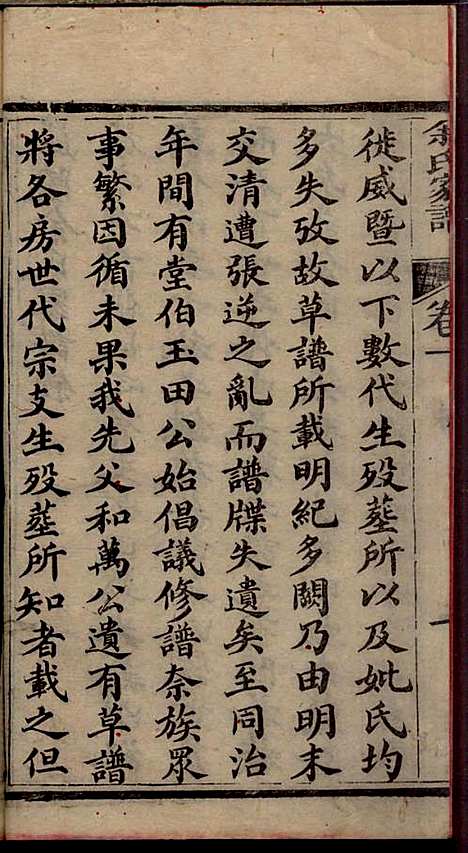 余氏家譜
卷一
一
徙威暨以下數代生殁塟所以及妣氏均
多失攷故草譜所載明紀多闕乃由明末
交清遭張逆之亂而譜牒失遺矣至同治
年間有堂伯玉田公始倡議修譜奈族眾
事繁因循未果我先父和萬公遺有草譜
將各房世代宗支生殁塟所知者載之但